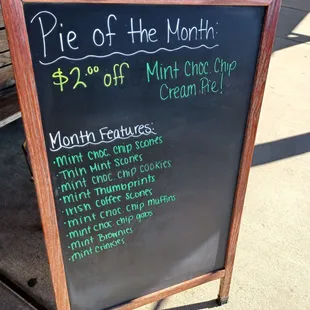 Pie of the Month:
$2.00 off Mint Choc. Chip
Cream Pie!
Month Features:
• Mint choc. chip scones
• Thin Mint Scones
• mint choc. chip cookies
• mint thumbprints
• Irish coffee scones
• mint choc. chip muffins
• mint choc. chip gobs
• Mint Brownies
• Mint crinkles